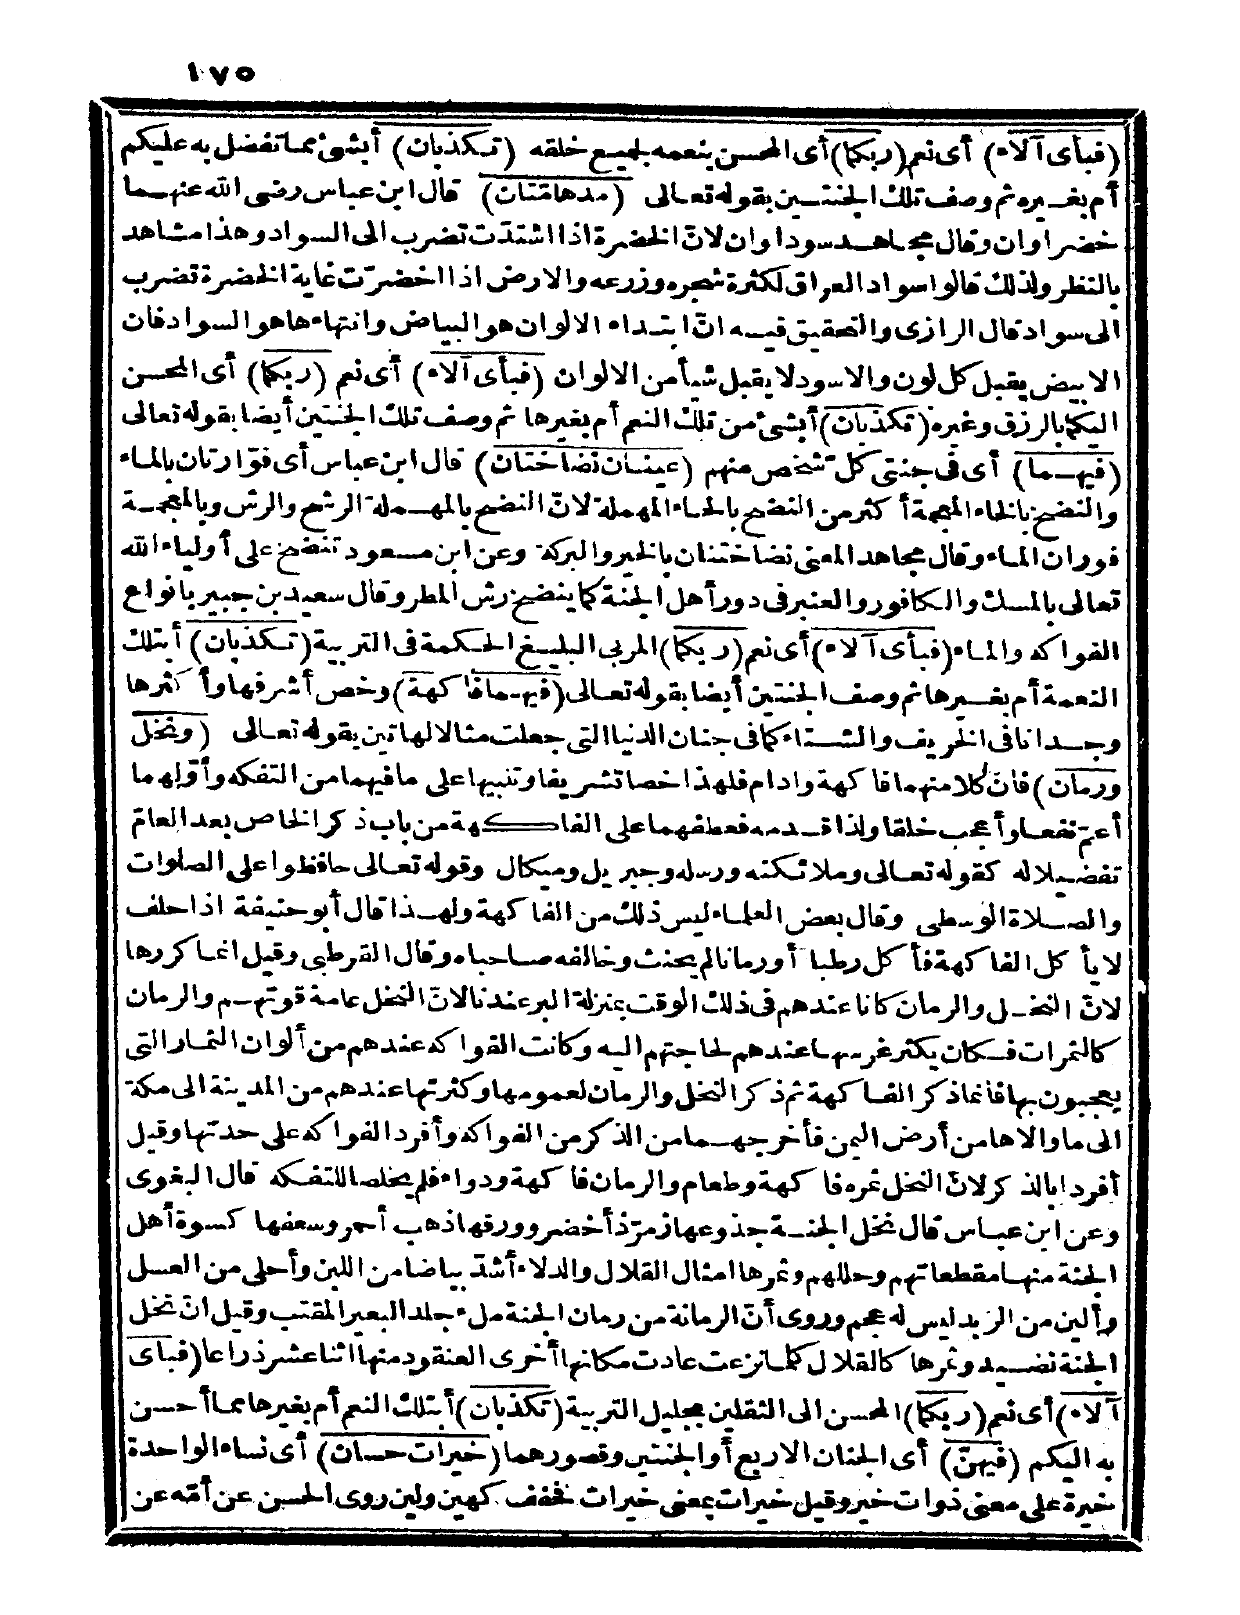 ١٧٥
(فبأى آلاء) أى نعم (ربكما) أى المحسن بنعمه لجميع خلقه (تكذبان) أبشئ مما تفضل به عليكم
أم بغيره ثم وصف تلك الجنتين بقوله تعالى (مدهامّتان) قال ابن عباس رضى الله عنهما
خضراوان وقال مجاهد سوداوان لانّ الخضرة اذا اشتدّت تضرب الى السواد وهذا مشاهد
بالنظر ولذلك قالوا سواد العراق لكثرة شجره وزرعه والارض اذا اخضرّت غاية الخضرة تضرب
الى سواد قال الرازى والتحقيق فيه انّ ابتداء الالوان هو البياض وانتهاءها هو السواد فان
الابيض يقبل كل لون والاسود لا يقبل شيأ من الالوان (فبأى آلاء) أى نعم (ربكما) أى المحسن
اليكما بالرزق وغيره (تكذبان) أبشئ من تلك النعم أم بغيرها ثم وصف تلك الجنتين أيضا بقوله تعالى
(فيهما) أى فى جنتى كل شخص منهم (عينان نضاختان) قال ابن عباس أى فوّارتان بالماء
والنضخ بالخاء المعجمة أكثر من النضح بالحاء المهملة لانّ النضح بالمهملة الرشح والرش وبالمعجمة
فوران الماء وقال مجاهد المعنى نضاختان بالخير والبركة وعن ابن مسعود تنضخ على أولياء الله
تعالى بالمسك والكافور والعنبر فى دور أهل الجنة كما ينضخ رش المطر وقال سعيد بن جبير بانواع
الفواكه والماء (فبأى آلاء) أى نعم (ربكما) المربى البليغ الحكمة فى التربية (تكذبان) أبتلك
النعمة أم بغيرها ثم وصف الجنتين أيضا بقوله تعالى (فيهما فاكهة) وخص أشرفها وأكثرها
وجدانا فى الخريف والشتاء كما فى جنان الدنيا التى جعلت مثالا لهاتين بقوله تعالى (ونخل
ورمان) فانّ كلا منهما فاكهة وادام فلهذا خصا تشريفا وتنبيها على ما فيهما من التفكه وأوّلهما
أعمّ نفعا وأعجب خلقا ولذا قدمه فعطفهما على الفاكهة من باب ذكر الخاص بعد العامّ
تفضيلا له كقوله تعالى وملائكته ورسله وجبريل وميكال وقوله تعالى حافظوا على الصلوات
والصلاة الوسطى وقال بعض العلماء ليس ذلك من الفاكهة ولهذا قال أبو حنيفة اذا حلف
لا يأكل الفاكهة فأكل رطبا أو رمانا لم يحنث وخالفه صاحباه وقال القرطبى وقيل انما كررها
لانّ النخل والرمان كانا عندهم فى ذلك الوقت بمنزلة البر عندنا لانّ النخل عامة قوتهم والرمان
كالثمرات فكان يكثر غرسها عندهم لحاجتهم اليه وكانت الفواكه عندهم من ألوان الثمار التى
يعجبون بها فانما ذكر الفاكهة ثم ذكر النخل والرمان لعمومها وكثرتها عندهم من المدينة الى مكة
الى ما والاها من أرض اليمن فأخرجهما من الذكر من الفواكه وأفرد الفواكه على حدتها وقيل
أفردا بالذكر لانّ النخل ثمره فاكهة وطعام والرمان فاكهة ودواء فلم يخلصا للتفكه قال البغوى
وعن ابن عباس قال نخل الجنة جذوعها زمرّذ أخضر وورقها ذهب أحمر وسعفها كسوة أهل
الجنة منها مقطعاتهم وحللهم وثمرها امثال القلال والدلاء أشدّ بياضا من اللبن وأحلى من العسل
وألين من الزبد ليس له عجم وروى أنّ الرمانة من رمان الجنة ملء جلد البعير المقتب وقيل انّ نخل
الجنة نضيد وثمرها كالقلال كلما نزعت عادت مكانها أخرى العنقود منها اثنا عشر ذراعا (فبأى
آلاء) أى نعم (ربكما) المحسن الى الثقلين بجليل التربية (تكذبان) أبتلك النعم أم بغيرها مما أحسن
به اليكم (فيهنّ) أى الجنان الاربع أو الجنتين وقصورهما (خيرات حسان) أى نساء الواحدة
خيرة على معنى ذوات خير وقيل خيرات بمعنى خيرات فخفف كهين ولين روى الحسن عن أمّه عن